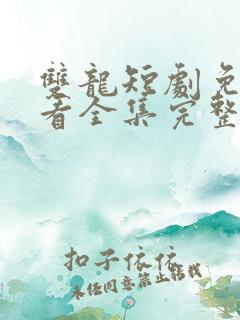 雙龍短劇免
看全集完整
扣子依依
未经同意禁止转载